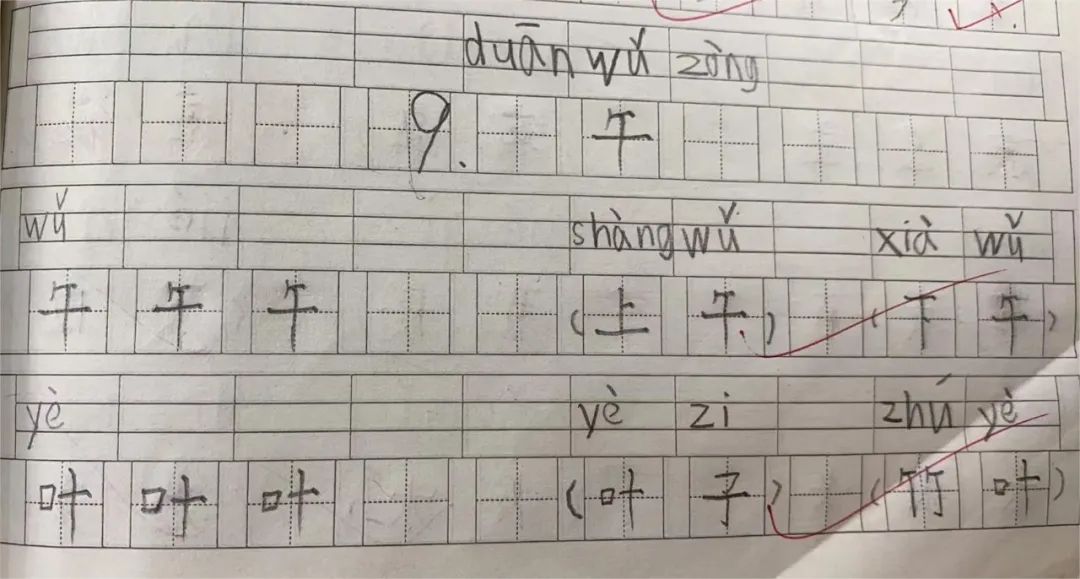 duān wǔ zòng
9. 午
wǔ shàng wǔ xià wǔ
午 午 午 (上 午) (下 午)
yè yè zi zhú yè
叶 叶 叶 (叶 子) (竹 叶)